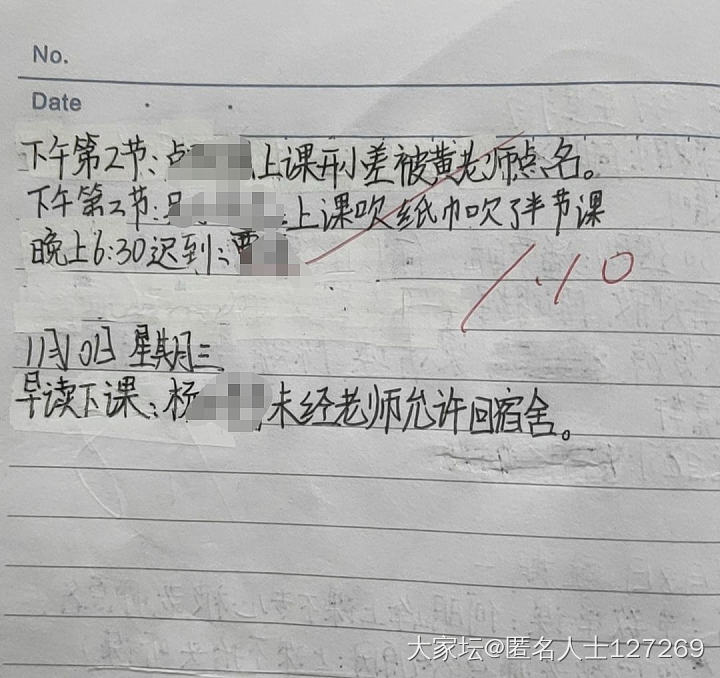 No.
Date
下午第2节:卢 上课开小差被黄老师点名。
下午第二节: 上课吹纸巾吹了半节课
晚上6:30迟到:覃
11.10
11月10日 星期三
早读下课:杨 未经老师允许回宿舍。
大家坛@匿名人士127269